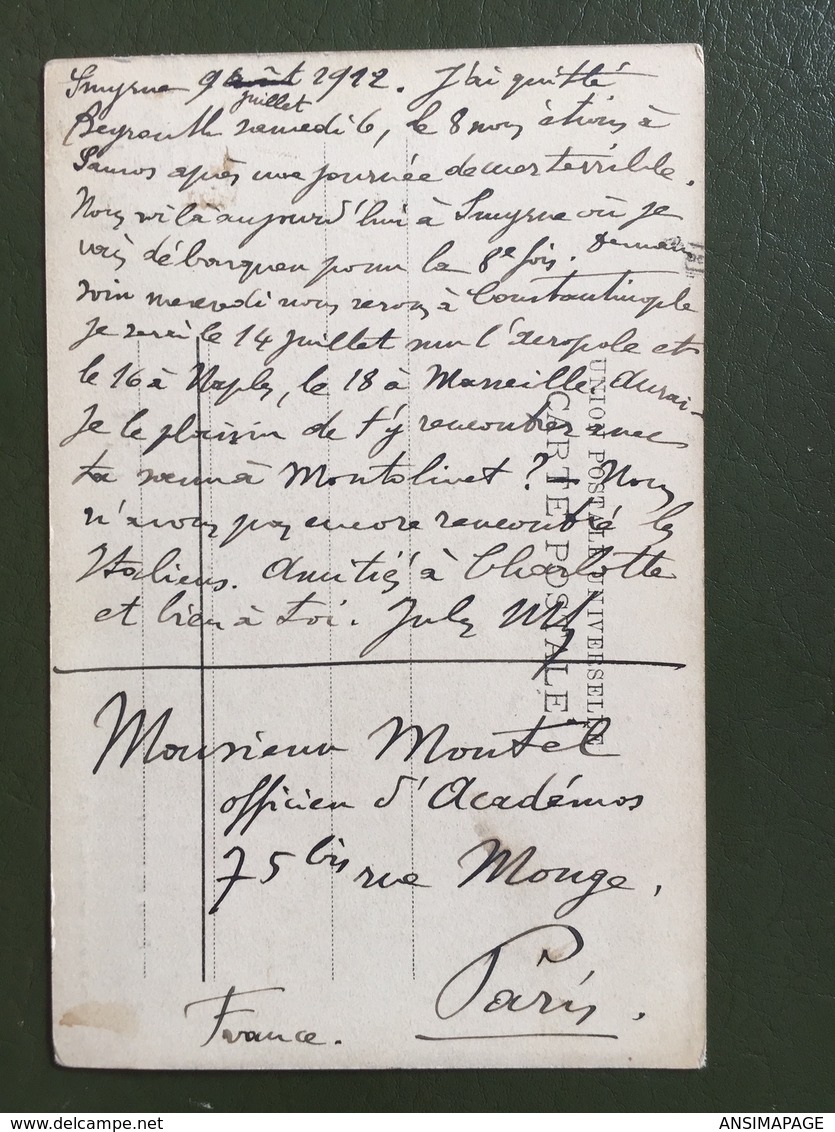 Smyrne 9 août 1912. J'ai quitté
juillet
Beyrouth samedi 6, le 8 nous étions à
Samos après une journée de mer terrible.
Nous voilà aujourd'hui à Smyrne où je
vais débarquer pour la 8e fois. Demain
soir mercredi nous serons à Constantinople
je serai le 14 juillet sur l'Acropole et
le 16 à Naples, le 18 à Marseille. Aurai-
je le plaisir de t'y rencontrer avec
ta sœur à Montolivet ? - Nous
n'avons pas encore rencontré les
Italiens. Amitiés à Charlotte
et bien à toi. Jules
Monsieur Montel
officier d'Académos
75 bis rue Monge,
Paris.
France.
UNION POSTALE UNIVERSELLE
CARTE POSTALE
delcampe.net
ANSIMAPAGE